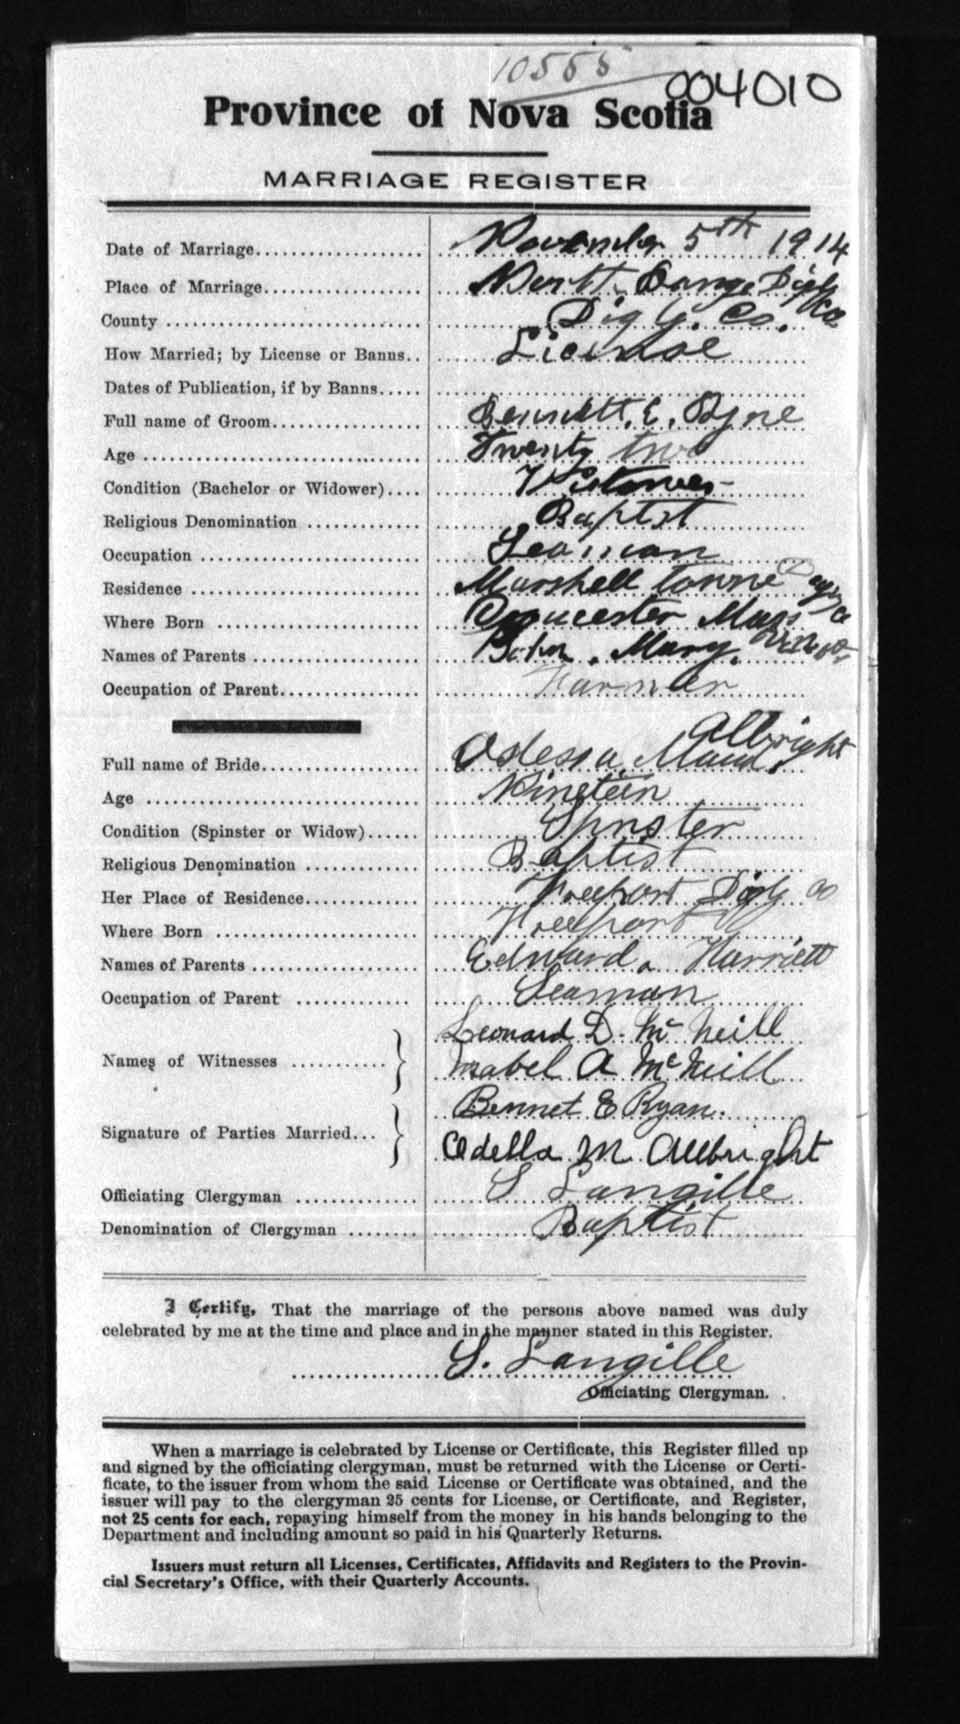 10555
004010
Province of Nova Scotia
MARRIAGE REGISTER
Date of Marriage.................... November 5th 1914
Place of Marriage................... North Range Digby Co
County .............................. Digby. Co.
How Married; by License or Banns.. License
Dates of Publication, if by Banns.....
Full name of Groom.................. E.
Age ................................. Twenty two
Condition (Bachelor or Widower)....
Religious Denomination ............. Baptist
Occupation .......................... Seaman
Residence ........................... Marshell towne Co
Where Born ......................... Gloucester Mass
Names of Parents .................... John. Mary.
Occupation of Parent................. Farmer
Full name of Bride................... Odessa Maud Allbright
Age ................................. Nineteen
Condition (Spinster or Widow)...... Spinster
Religious Denomination ............. Baptist
Her Place of Residence.............. Freeport Digby Co
Where Born ......................... Freeport
Names of Parents .................... Edward. Harriett
Occupation of Parent ............... Seaman
Leonard D. McNeill
Names of Witnesses ........... } Mabel A McNeill
Bennet E Ryan.
Signature of Parties Married... } Odella M Allbright
Officiating Clergyman ............... S Langille
Denomination of Clergyman ......... Baptist
I Certify, That the marriage of the persons above named was duly
celebrated by me at the time and place and in the manner stated in this Register.
S. Langille
Officiating Clergyman.
When a marriage is celebrated by License or Certificate, this Register filled up
and signed by the officiating clergyman, must be returned with the License or Certi-
ficate, to the issuer from whom the said License or Certificate was obtained, and the
issuer will pay to the clergyman 25 cents for License, or Certificate, and Register,
not 25 cents for each, repaying himself from the money in his hands belonging to the
Department and including amount so paid in his Quarterly Returns.
Issuers must return all Licenses, Certificates, Affidavits and Registers to the Provin-
cial Secretary's Office, with their Quarterly Accounts.